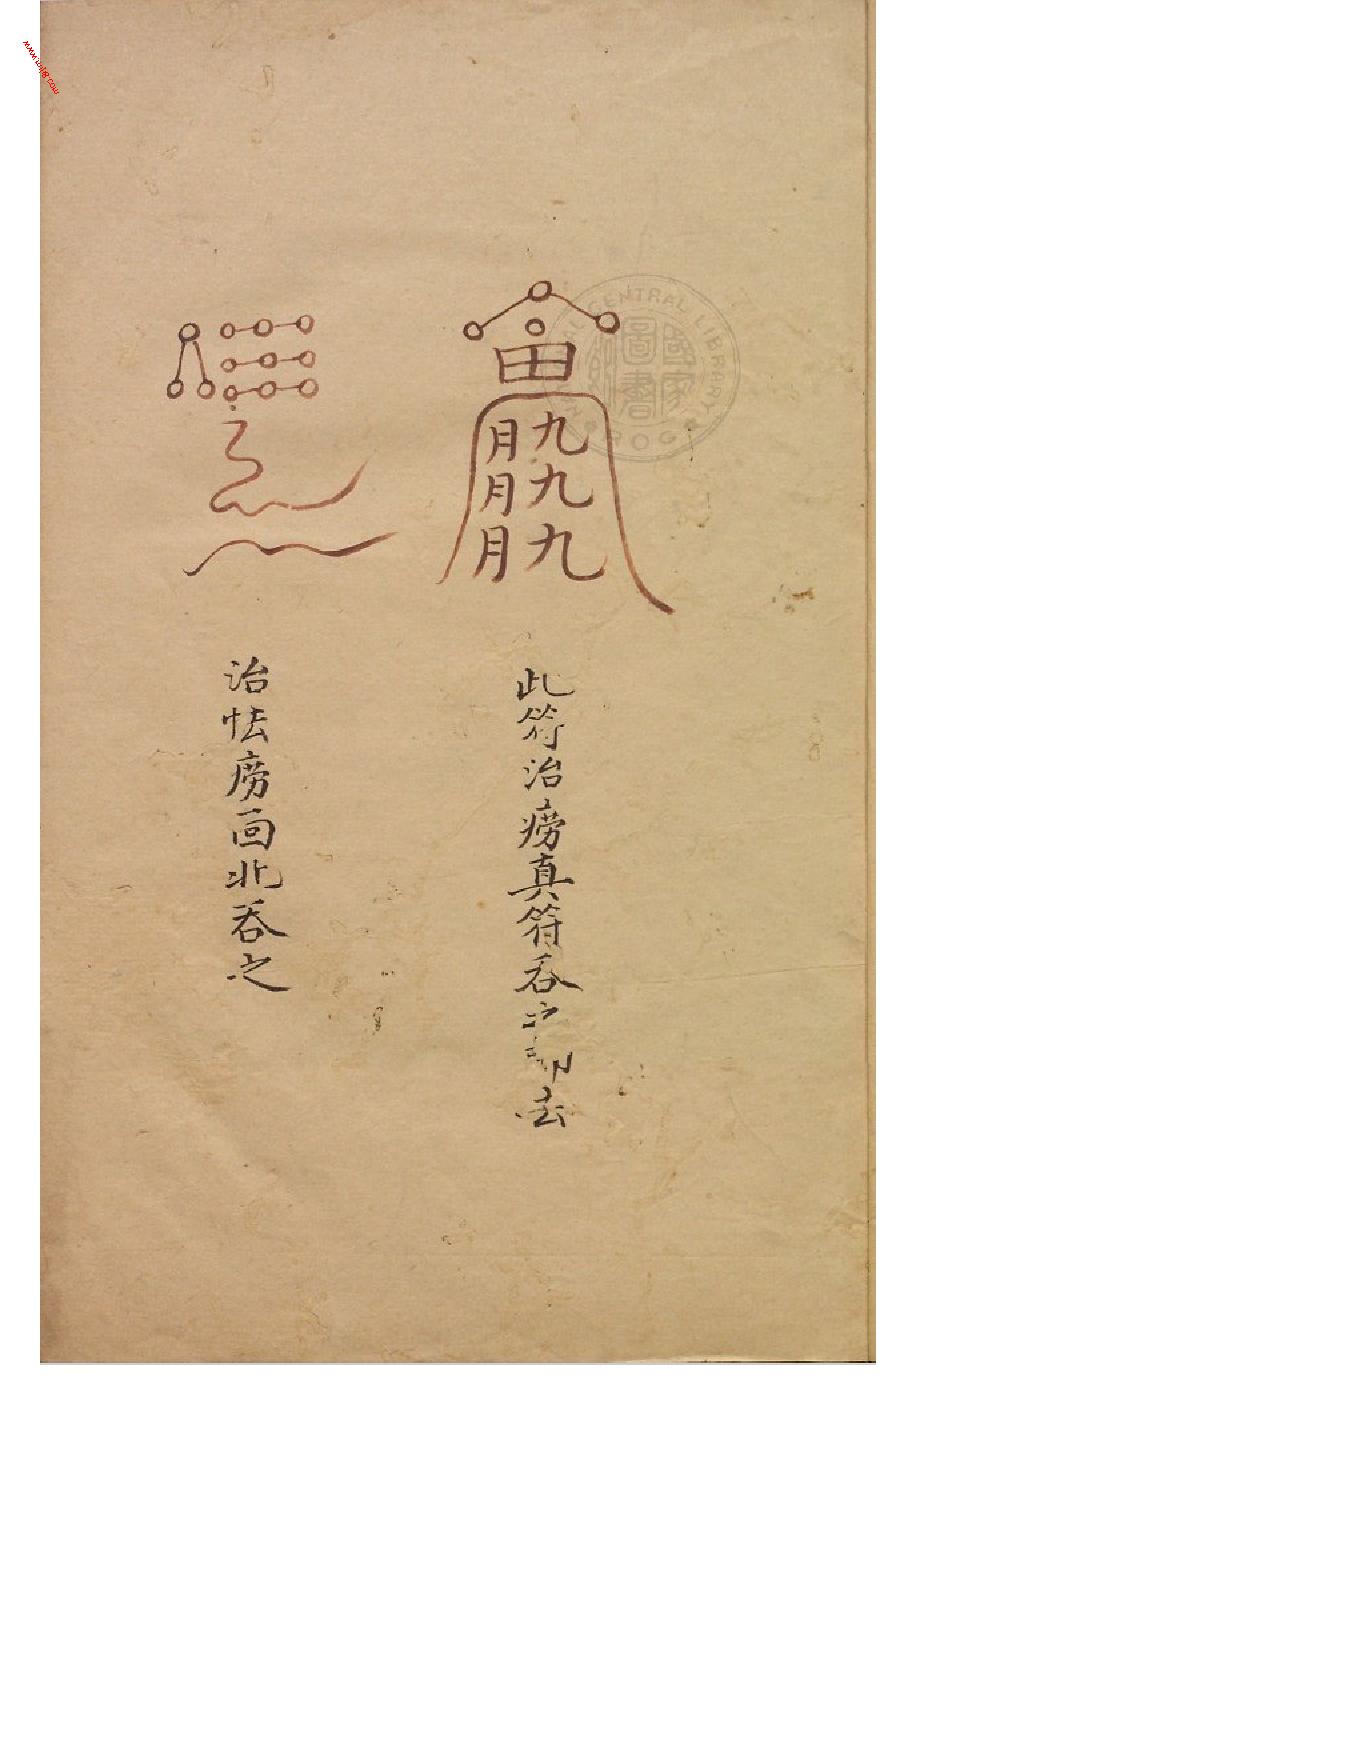 田
九九九
月月月
此符治痨真符吞之即去
治怯痨面北吞之
NATIONAL CENTRAL LIBRARY
國家圖書館
ROC